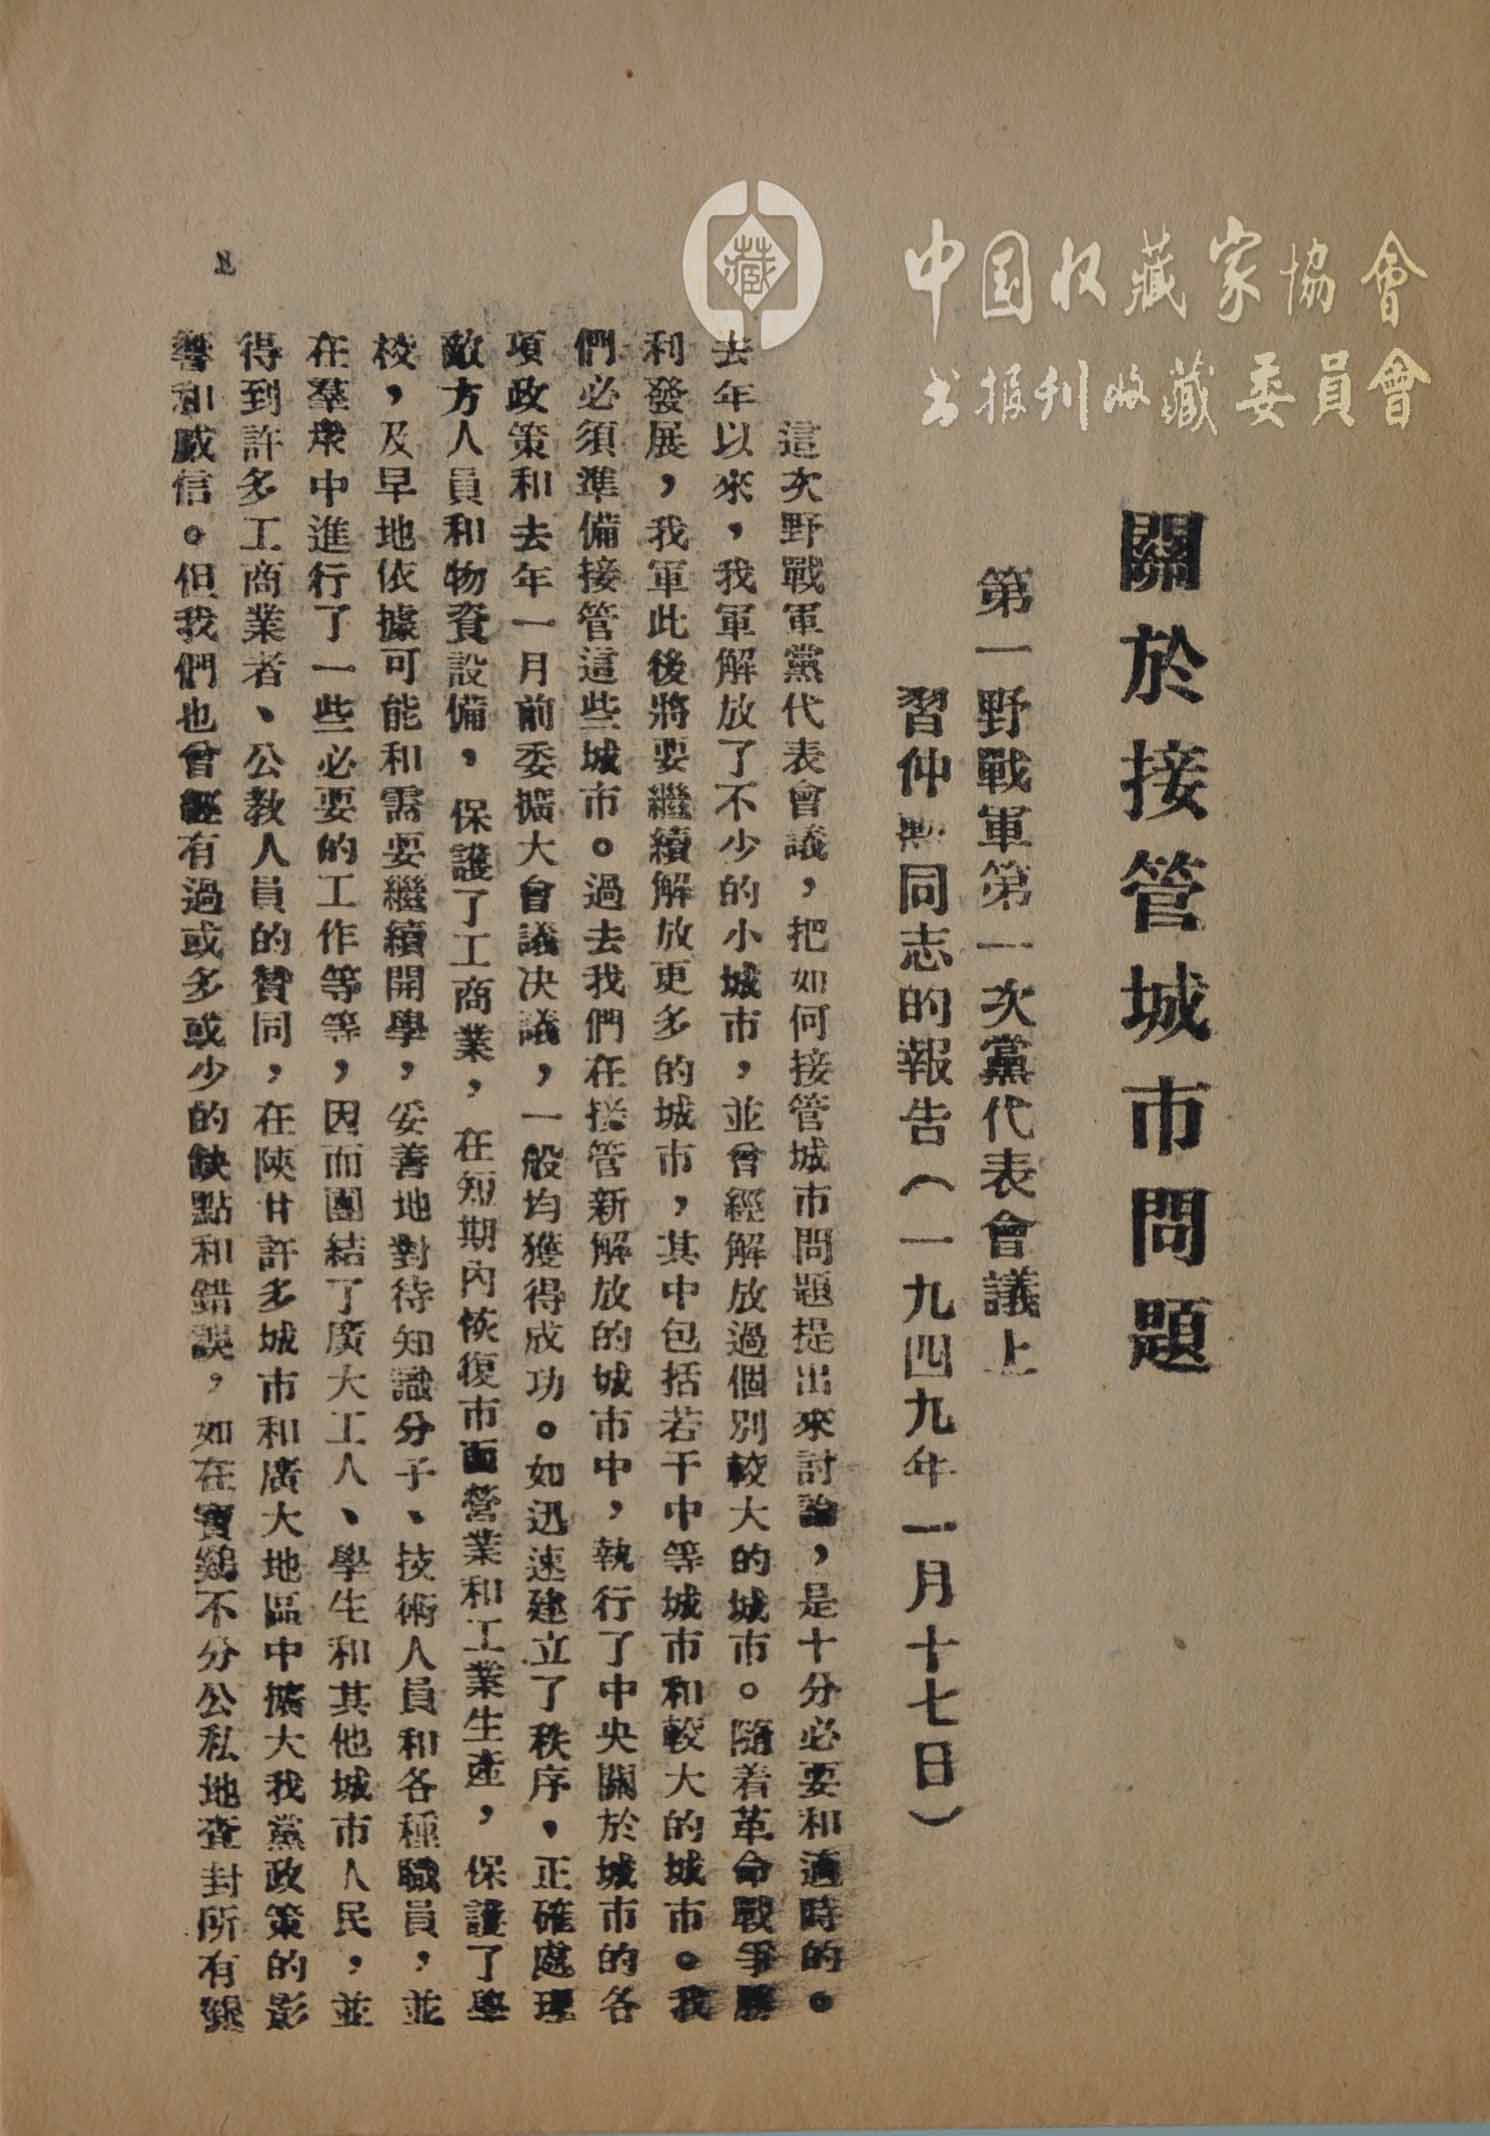 中国收藏家協會
书报刊收藏委員會
關於接管城市問題
第一野戰軍第一次黨代表會議上
習仲勲同志的報告(一九四九年一月十七日)
這次野戰軍黨代表會議,把如何接管城市問題提出來討論,是十分必要和適時的。
去年以來,我軍解放了不少的小城市,並曾經解放過個別較大的城市。隨着革命戰爭勝
利發展,我軍此後將要繼續解放更多的城市,其中包括若干中等城市和較大的城市。我
們必須準備接管這些城市。過去我們在接管新解放的城市中,執行了中央關於城市的各
項政策和去年一月前委擴大會議決議,一般均獲得成功。如迅速建立了秩序,正確處理
敵方人員和物資設備,保護了工商業,在短期內恢復市面營業和工業生產,保護了學
校,及早地依據可能和需要繼續開學,妥善地對待知識分子、技術人員和各種職員,並
在羣衆中進行了一些必要的工作等等,因而團結了廣大工人、學生和其他城市人民,並
得到許多工商業者、公教人員的贊同,在陝甘許多城市和廣大地區中擴大我黨政策的影
響和威信。但我們也曾經有過或多或少的缺點和錯誤,如在寶鷄不分公私地查封所有銀
藏